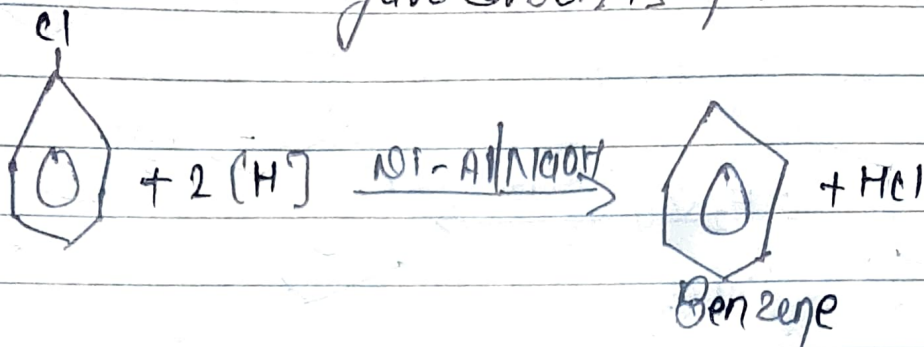 Cl
+ 2 [H] Ni-Al/NaOH + HCl
Benzene